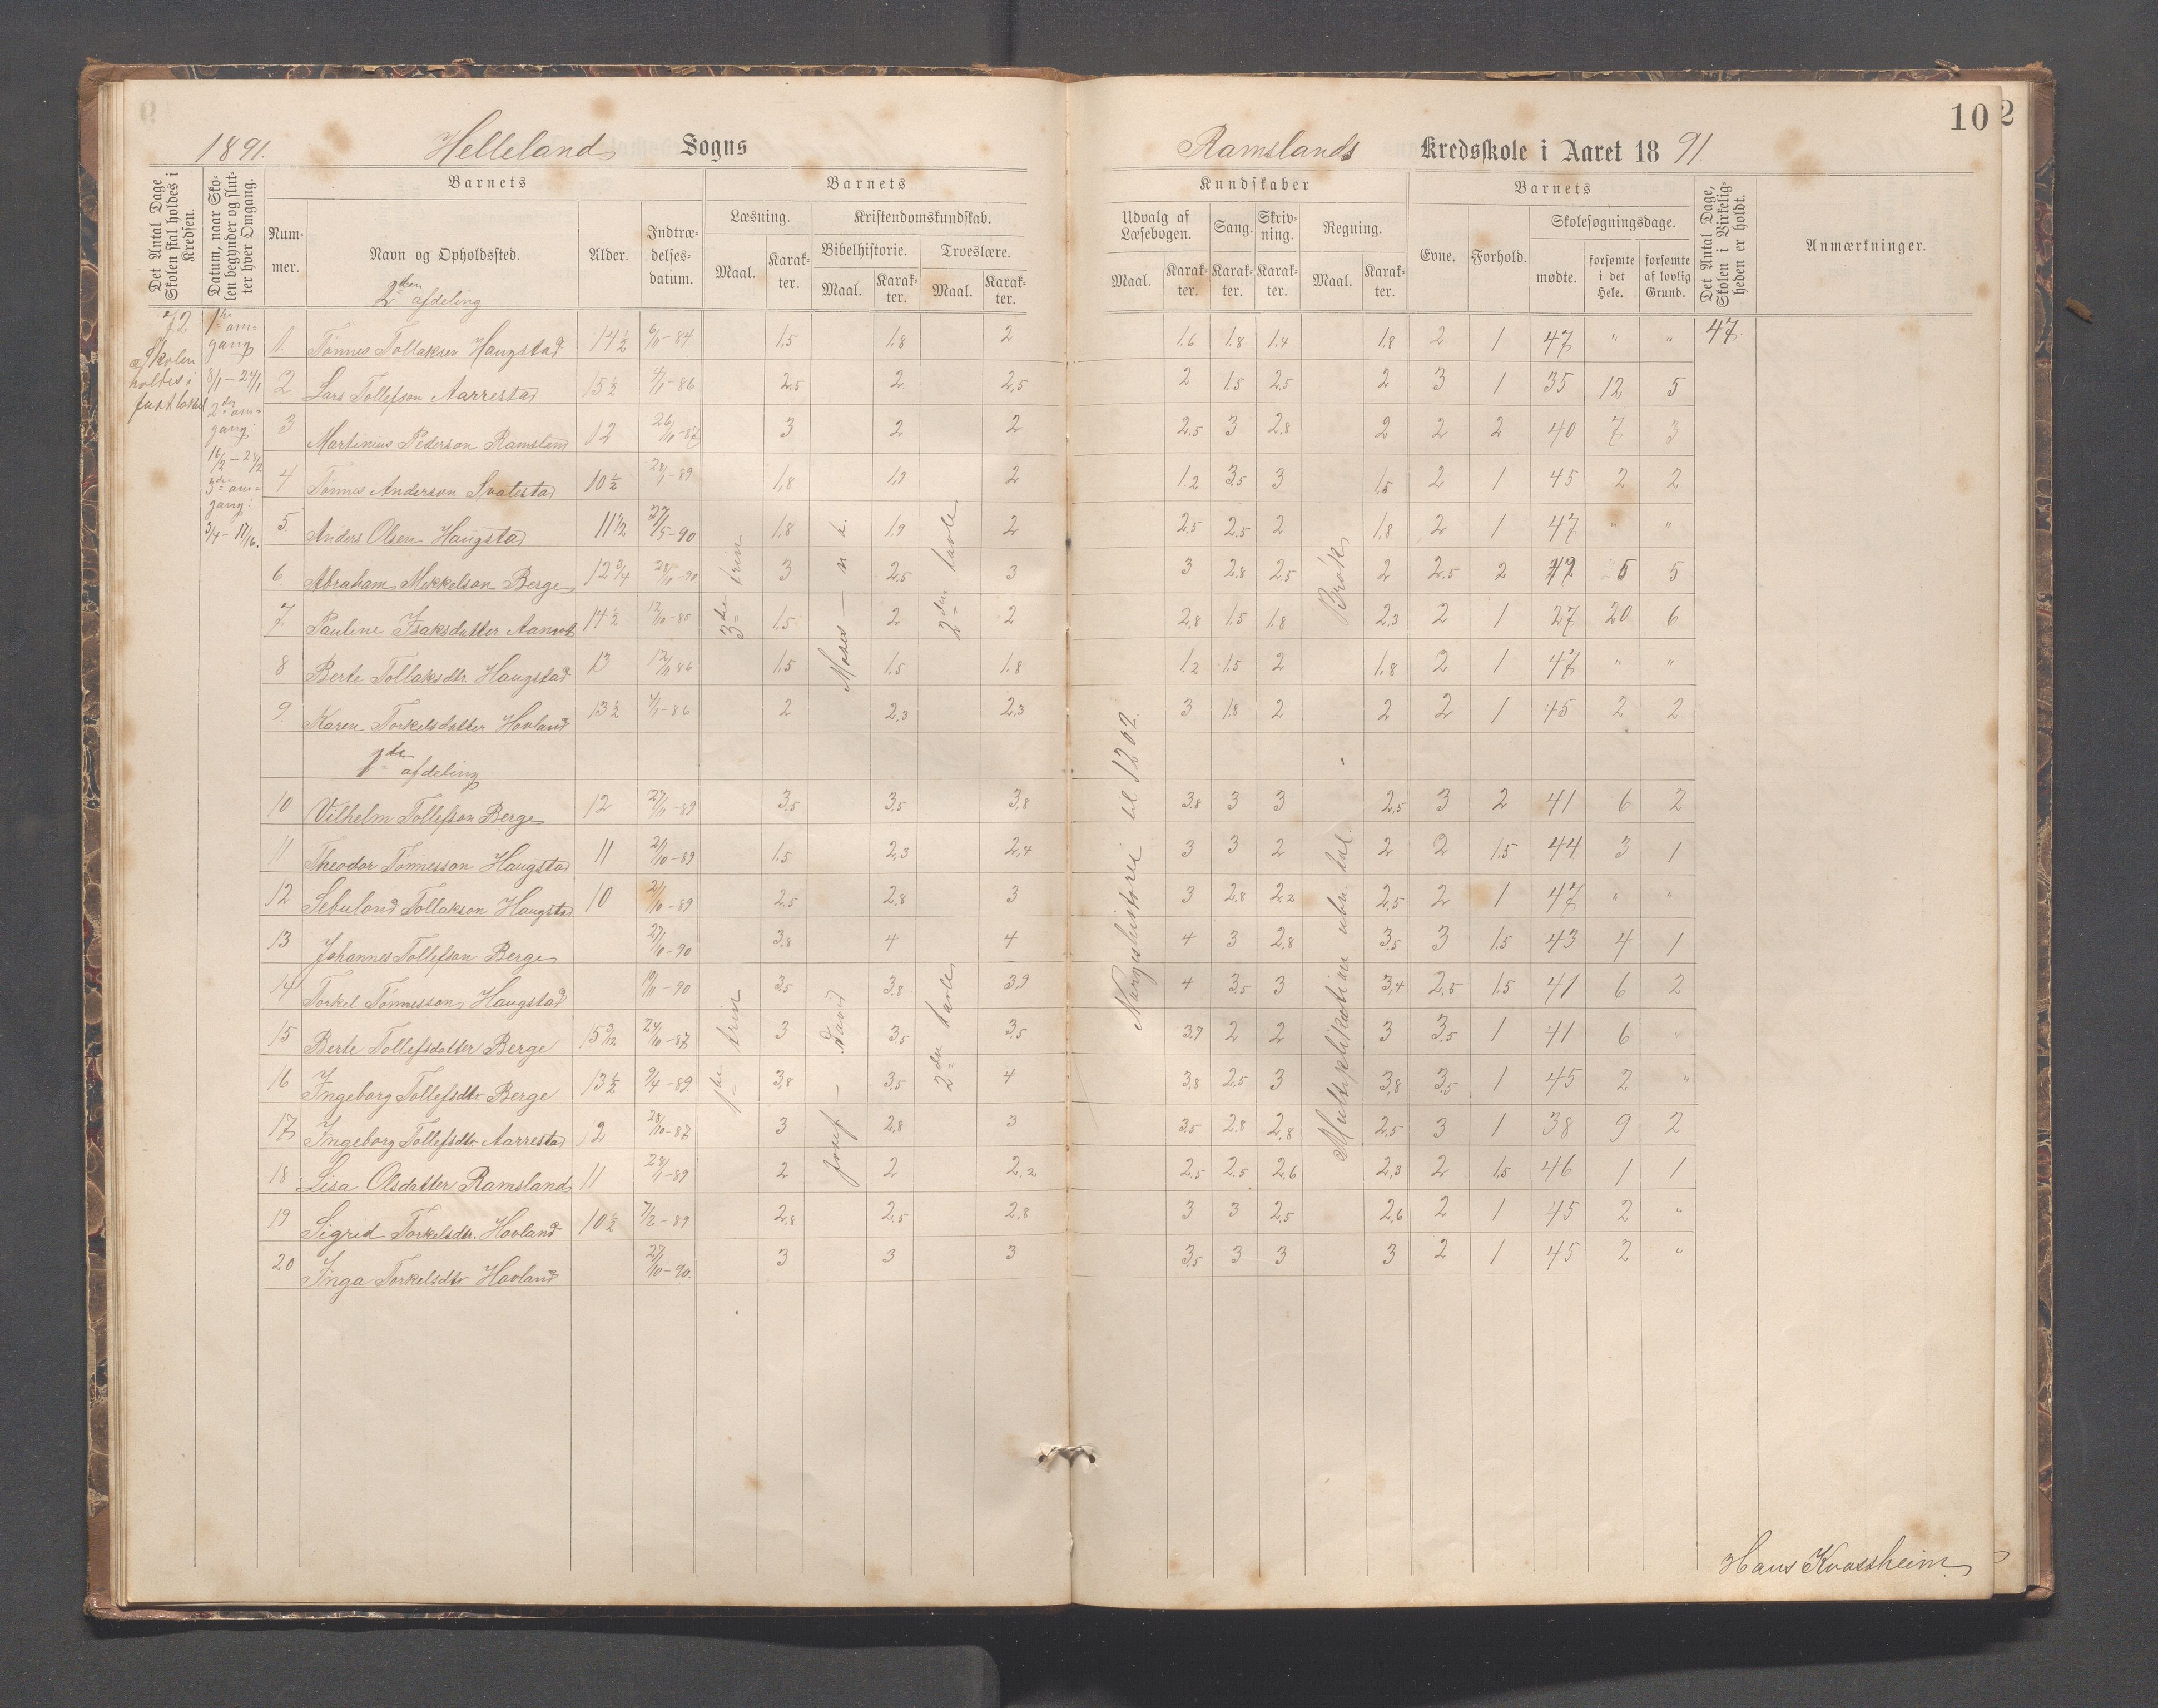 1891. Helleland Sogns
Ramslands Kredsskole i Aaret 1891.
10
2
Det Antal Dage Skolen skal holdes i Kredsen.
Datum, naar Skolen begynder og slutter hver Omgang.
Barnets
Nummer.
Navn og Opholdssted.
Alder.
Indtrædelses-datum.
Barnets
Læsning.
Maal. Karakter.
Kristendomskundskab.
Bibelhistorie. Troeslære.
Maal. Karakter. Maal. Karakter.
Kundskaber
Udvalg af Læsebogen. Sang. Skrivning. Regning.
Maal. Karakter. Karakter. Karakter. Maal. Karakter.
Barnets
Evne. Forhold. Skolesøgningsdage.
mødte. forsømte i det Hele. forsømte af lovlig Grund.
Det Antal Dage, Skolen i Virkeligheden er holdt.
Anmærkninger.
72
Skolen holdes i
1ste omgang
8/1 – 24/1
2den omgang:
16/2 – 28/2
3die omgang:
2den afdeling
1. Tønnes Tollaksen Haugstad 14½ 6/10–84 1.5 1.8 2 1.6 1.8 1.4 1.8 2 1 47 " " 47.
2 Lars Tollefson Aarrestad 15½ 4/1–86 2.5 2 2,5 2 1.5 2.5 2 3 1 35 12 5
3 Martinius Pederson Ramsland 12 26/10–87 3 2 2 2.5 3 2.8 2 2 2 40 7 3
4 Tønnes Anderson Svalestad 10½ 28/1–89 1,8 1,9 2 1.2 3.5 3 1.5 2 1 45 2 2
5 Anders Olsen Haugstad 11½ 27/5–90 1.8 1.9 2 2.5 2.5 2 1.8 2 1 47 " "
6 Abraham Mikkelson Berge 12¾ 28/10–90 3 2.5 3 3 2.8 2.5 2 2.5 2 42 5 5
7 Pauline Isaksdatter 14½ 12/10–85 1.5 2 2 2,8 1.5 1.8 2.3 2 1 27 20 6
8 Berte Tollaksdtr. Haugstad 13 1.5 1.5 1.8 1.2 1.5 2 1.8 2 1 47 " "
9. Karen Torkelsdatter Hovland 13½ 4/1–86 2 2,3 2,3 3 1.8 2 2 2 1 45 2 2
3die trin
Moses – n. t.
2den tavle
Brøk
1ste afdeling
10 Vilhelm Tollefson Berge 12 27/10–89 3.5 3.5 3,8 3.8 3 3 2,5 3 2 41 6 2
11 Theodor Tønnesson Haugstad 11 21/10–89 1.5 2,3 2,4 3 3 2 2 2 1.5 44 3 1
12 Sebulond Tollakson Haugstad 10 21/10–89 2.5 2.8 3 3 2.8 2.2 2,5 2 1 47 " "
13 Johannes Tollefson Berge 27/10–90 3,8 4 4 4 3 2.8 3.5 3 1.5 43 4 1
14 Torkel Tønnesson Haugstad 19/11–90 3.5 3.8 3,9 4 3.5 3 3,4 2.5 1.5 41 6 2
15 Berte Tollefsdatter Berge 15 3/12 24/10–87 3 3.5 3.5 3.7 2 2 3 3.5 1 41 6 "
16 Ingeborg Tollefsdtr Berge 13½ 9/4–89. 3,8 3.5 4 3.8 2.5 3 3.8 3.5 1 45 2 "
17 Ingeborg Tollefsdtr Aarrestad 12 28/10–87 3 2,8 3 3.5 2.8 2,8 2.5 3 1 38 9 2
18 Lisa Olsdatter Ramsland 11 28/1–89 2 2 2,2 2.5 2.5 2,6 2,3 2 1.5 46 1 1
19 Sigrid Torkelsdtr. Hovland 10½ 7/2–89 2,8 2.5 2,8 3 3 2.5 2,6 2 1 45 2 "
20 Inga Torkelsdtr Hovland 27/10–90. 3 3 3 3.5 3 3 3 2 1 45 2 "
1ste trin
Josef – David
2den tavle
Norgeshistorie til 1202.
Multiplikation ubn. tal.
Hans Kvassheim